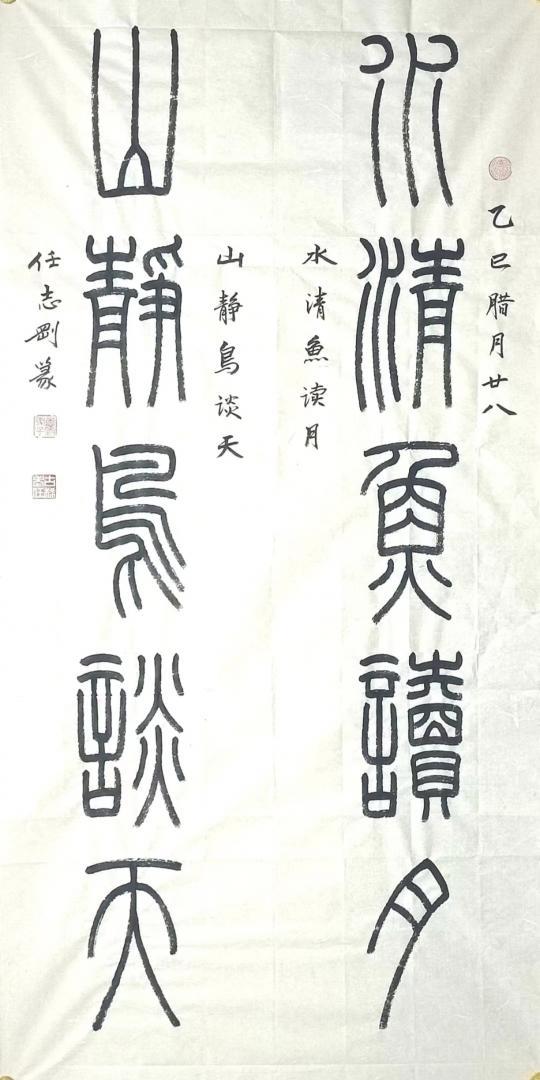 乙巳腊月廿八
水清魚讀月
水清魚读月
山静鳥谈天
山靜鳥談天
任志剛篆